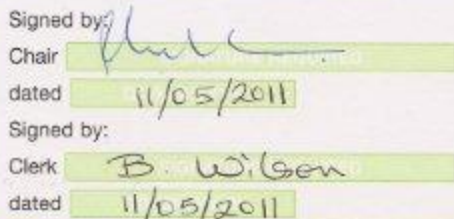 Signed by:
Chair
dated 11/05/2011
Signed by:
Clerk B. Wilson
dated 11/05/2011